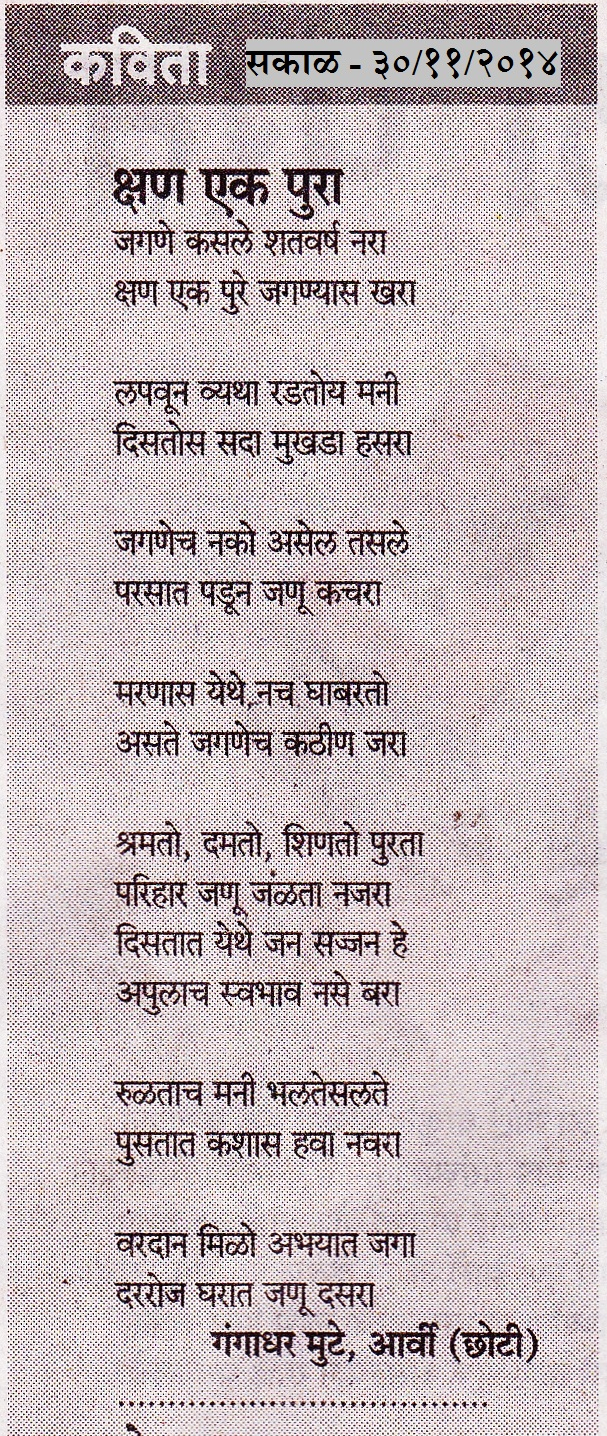 कविता सकाळ - ३०/११/२०१४
क्षण एक पुरा
जगणे कसले शतवर्ष नरा
क्षण एक पुरे जगण्यास खरा
लपवून व्यथा रडतोय मनी
दिसतोस सदा मुखडा हसरा
जगणेच नको असेल तसले
परसात पडून जणू कचरा
मरणास येथे नच घाबरतो
असते जगणेच कठीण जरा
श्रमतो, दमतो, शिणतो पुरता
परिहार जणू जंळता नजरा
दिसतात येथे जन सज्जन हे
अपुलाच स्वभाव नसे बरा
रुळताच मनी भलतेसलते
पुसतात कशास हवा नवरा
वरदान मिळो अभयात जगा
दररोज घरात जणू दसरा
गंगाधर मुटे, आर्वी (छोटी)